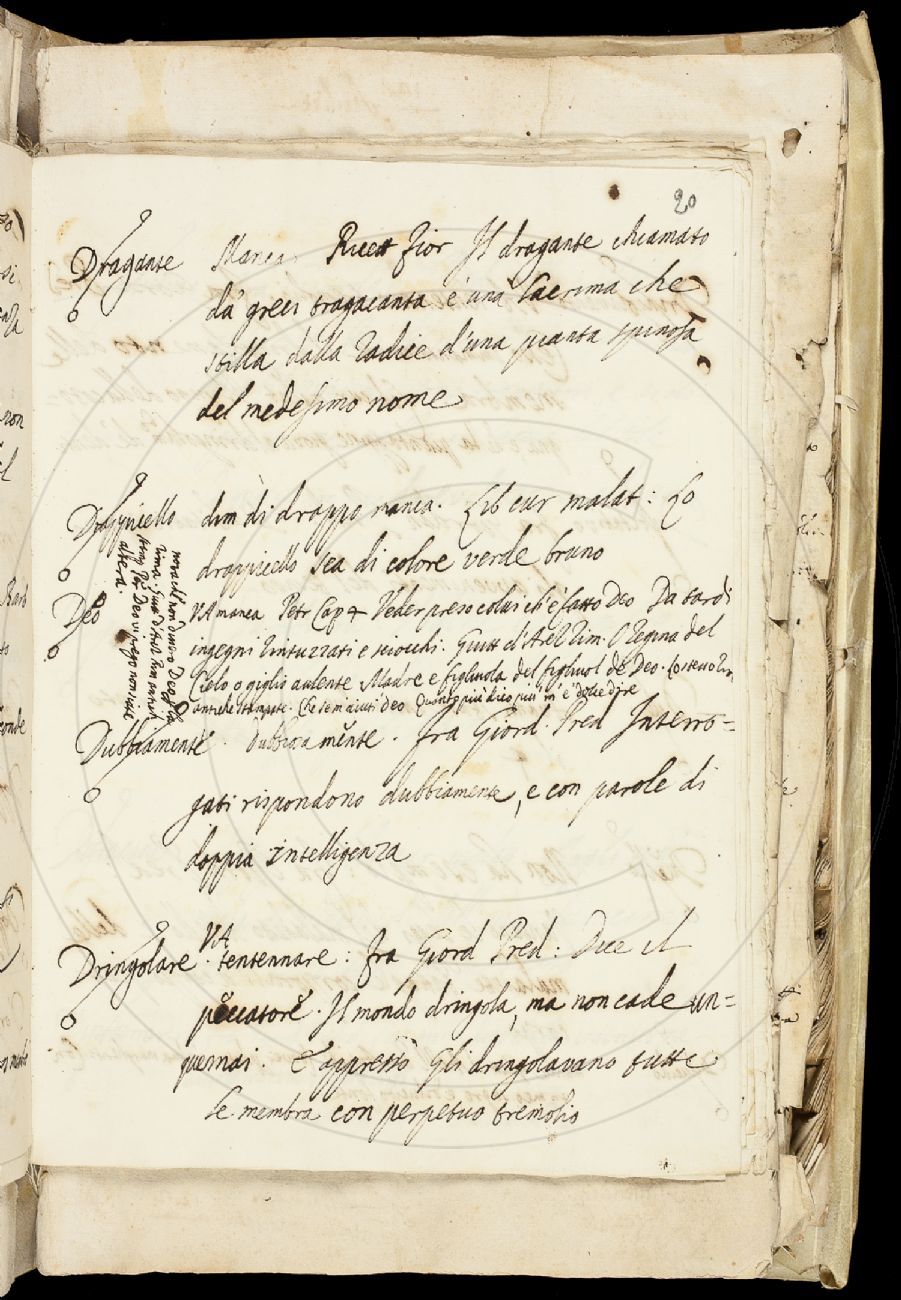 20
Dragante Manca. Ricett Fior Il dragante chiamato
da' greci tragacanta e' una Lacrima che
stilla dalla radice d'una pianta spinosa
del medesimo nome
Drappicello dim di drappo manca. Lib cur malat: Lo
drappicello sea di colore verde bruno
Deo VA manca Petr Cap 4 Veder preso colui ch'e' fatto Deo Da tardi
ingegni rintuzzati e sciocchi. Guitt d'Arez rim. O regina del
Cielo o giglio aulente Madre e figliuola del figliuol de Deo. Lo stesso
antiche stampate. Che se m'aiuti Deo Quanto più dico più m'è dolce dire
altera.
Dubbiamente. Dubbiamente. Fra Giord. Pred Interro=
gati rispondono dubbiamente, e con parole di
doppia intelligenza
Dringolare. VA tentennare: Fra Giord Pred: Dice il
peccatore. Il mondo dringola, ma non cade un=
quemai. E appresso Gli dringolavano tutte
Le membra con perpetuo tremolio